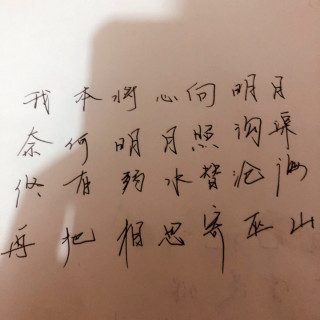 我本将心向明月
奈何明月照沟渠
终有弱水替沧海
再把相思寄巫山